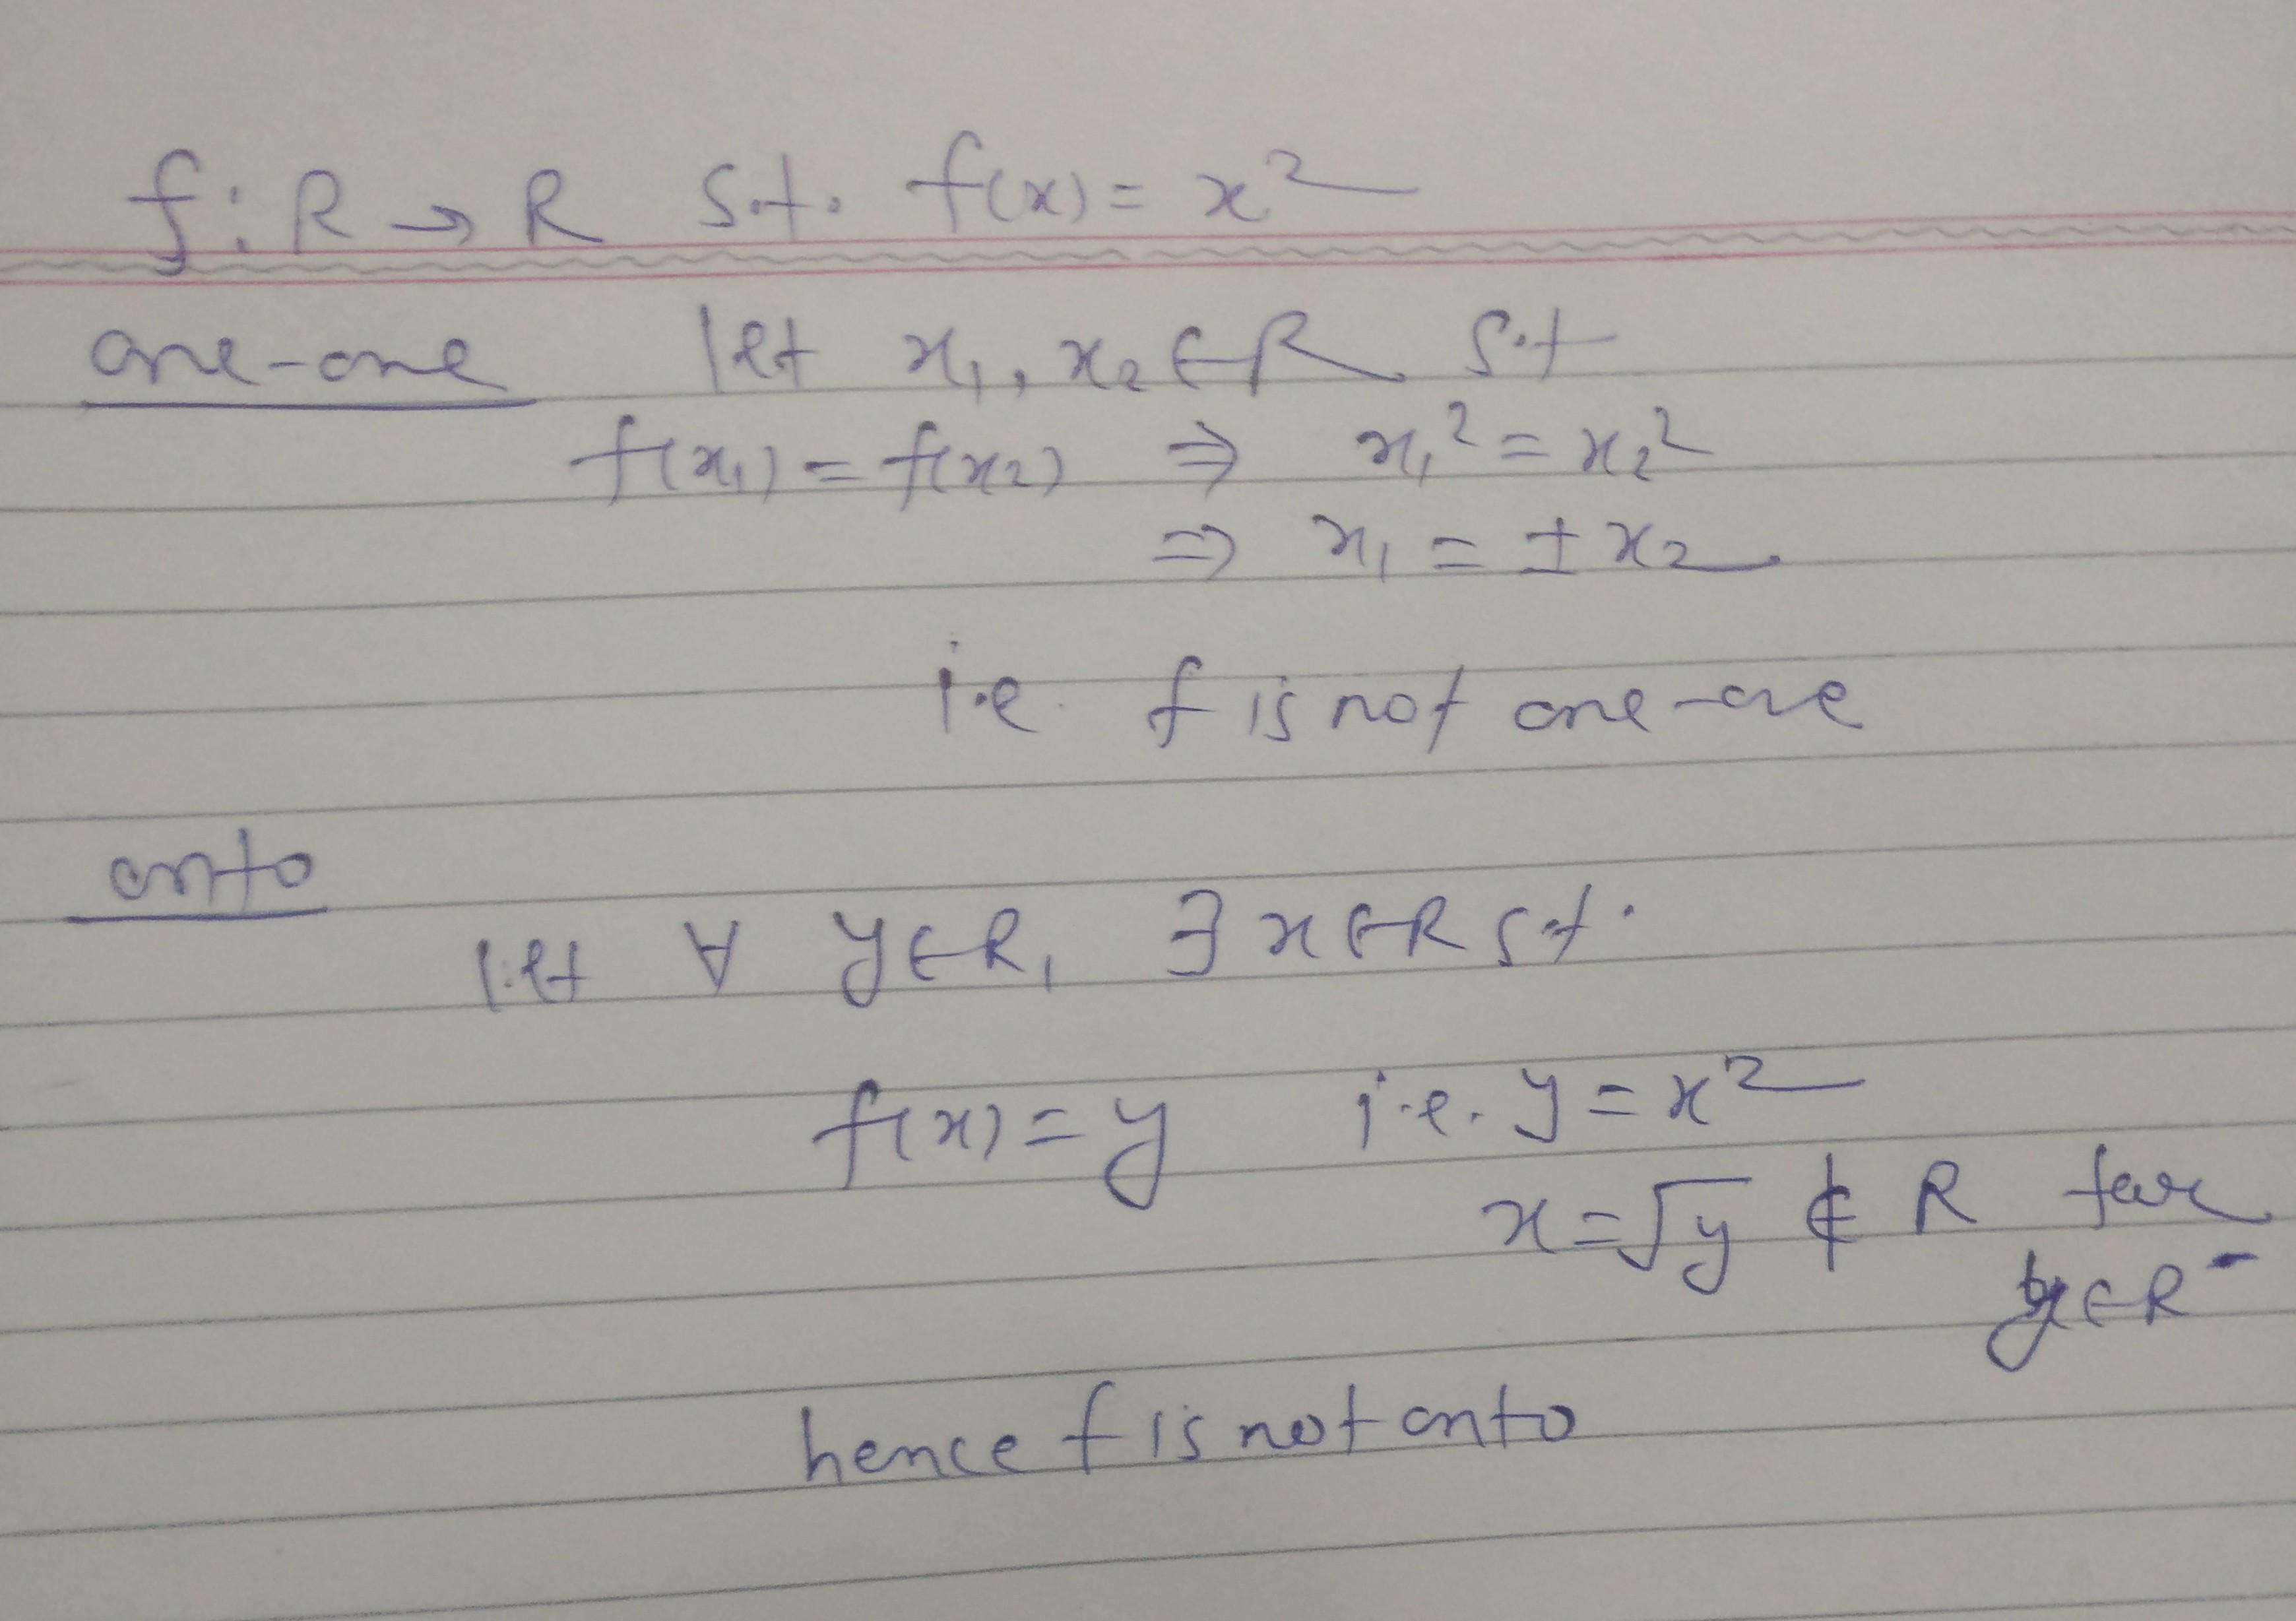 f: R → R s.t. f(x) = x²
one-one let x₁, x₂ ∈ R s.t
f(x₁) = f(x₂) ⇒ x₁² = x₂²
⇒ x₁ = ± x₂
i.e. f is not one-one
onto
let ∀ y ∈ R, ∃ x ∈ R s.t.
f(x) = y i.e. y = x²
x = √y ∉ R for
y ∈ R⁻
hence f is not onto